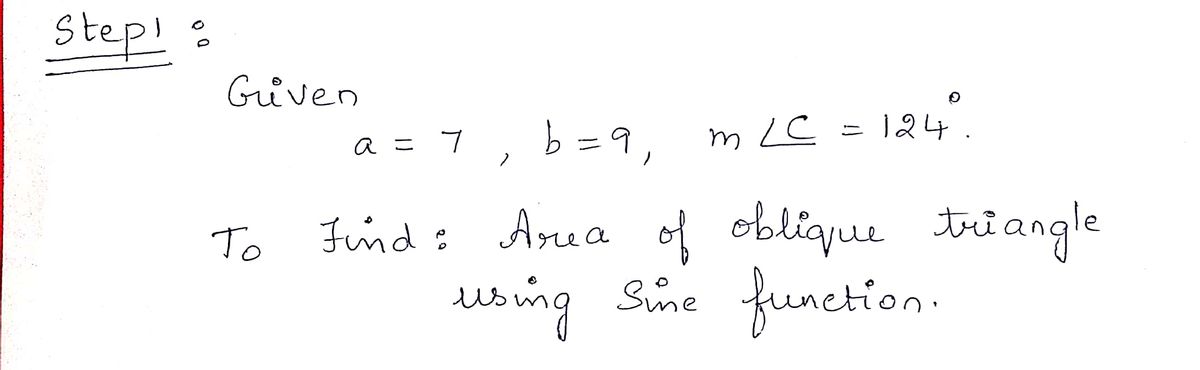 Step1 :
Given
a = 7 , b = 9, m ∠C = 124°.
To Find : Area of oblique triangle
using Sine function.